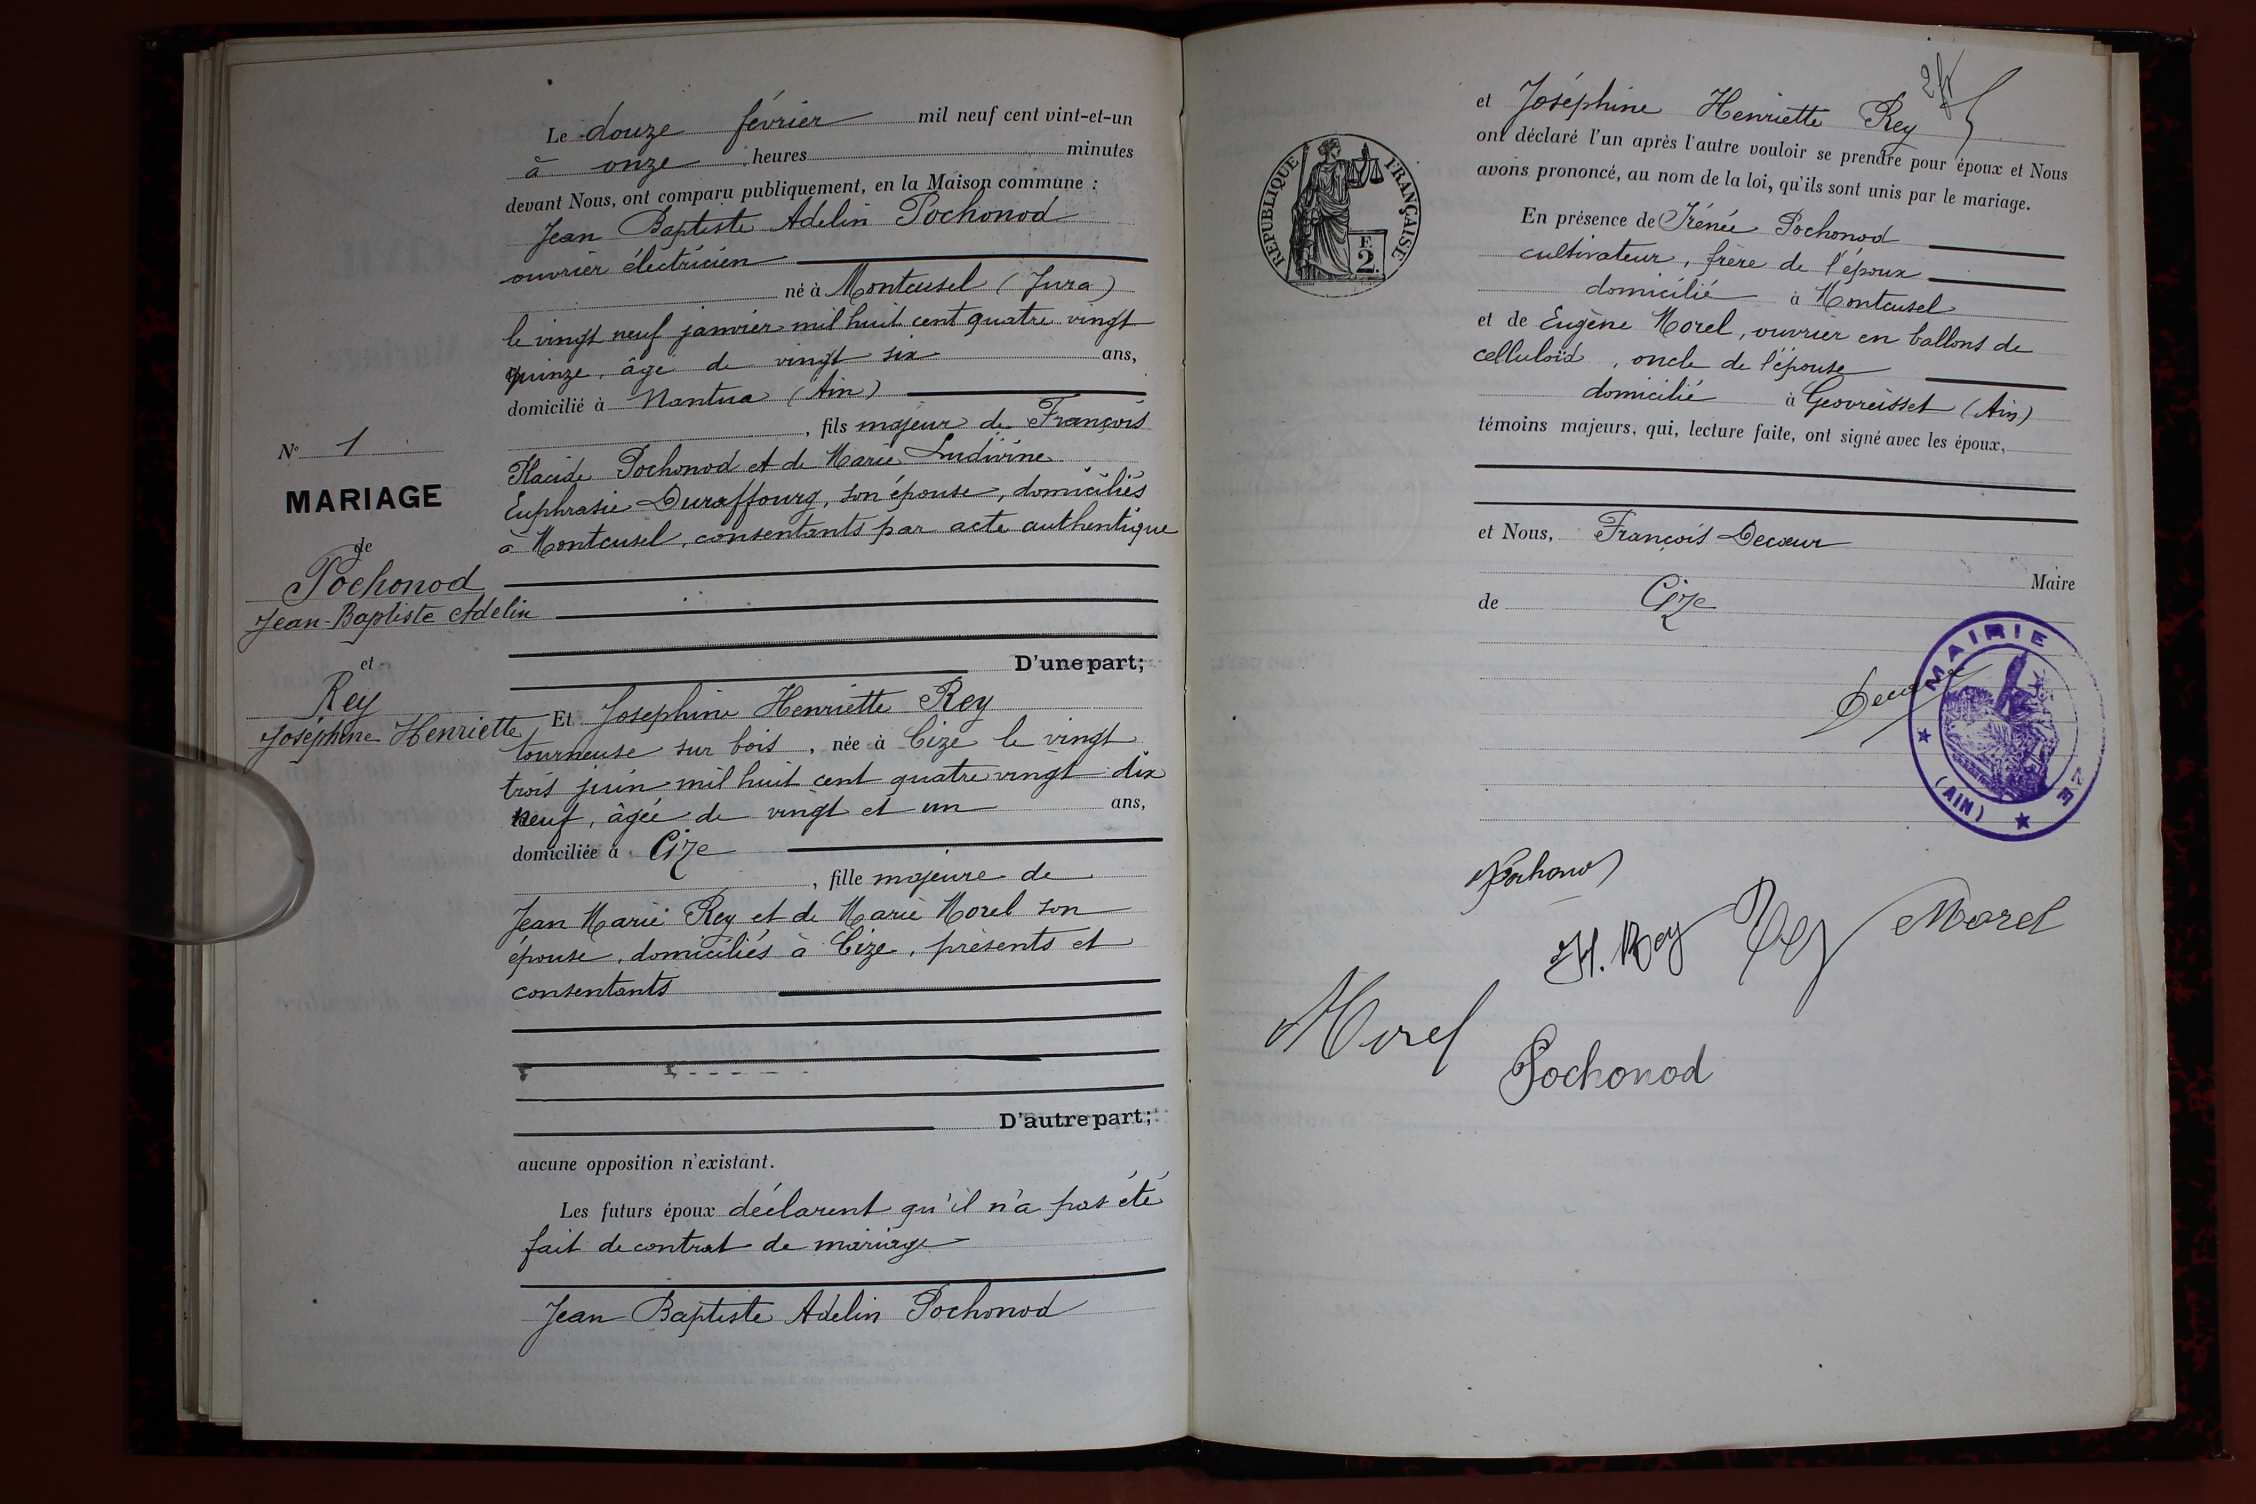 N° 1
MARIAGE
de
Pochonod
Jean-Baptiste Adelin
et
Rey
Joséphine Henriette
Le douze février mil neuf cent vint-et-un
à onze heures minutes
devant Nous, ont comparu publiquement, en la Maison commune :
Jean Baptiste Adelin Pochonod
ouvrier électricien
né à Montcusel (Jura)
le vingt neuf janvier mil huit cent quatre vingt
quinze, âgé de vingt six ans,
domicilié à Nantua (Ain)
, fils majeur de François
Placide Pochonod et de Marie Ludivine
Euphrasie Duraffourg, son épouse, domiciliés
à Montcusel, consentants par acte authentique
D'une part;
Et Joséphine Henriette Rey
tourneuse sur bois, née à Cize le vingt
trois juin mil huit cent quatre vingt dix
neuf, âgée de vingt et un ans,
domiciliée à Cize
, fille majeure de
Jean Marie Rey et de Marie Morel son
épouse, domiciliés à Cize, présents et
consentants
D'autre part;
aucune opposition n'existant.
Les futurs époux déclarent qu'il n'a pas été
fait de contrat de mariage
Jean Baptiste Adelin Pochonod
2 fr
REPUBLIQUE FRANÇAISE
F.
2.
et Joséphine Henriette Rey
ont déclaré l'un après l'autre vouloir se prendre pour époux et Nous
avons prononcé, au nom de la loi, qu'ils sont unis par le mariage.
En présence de Irénée Pochonod
cultivateur, frère de l'époux
domicilié à Montcusel
et de Eugène Morel, ouvrier en ballons de
celluloïd, oncle de l'épouse
domicilié à Géovreisset (Ain)
témoins majeurs, qui, lecture faite, ont signé avec les époux,
et Nous, François Decœur
Maire
de Cize
MAIRIE
ZE
(AIN)
Decœur
Pochonod
H. Rey Rey Morel
Morel
Pochonod